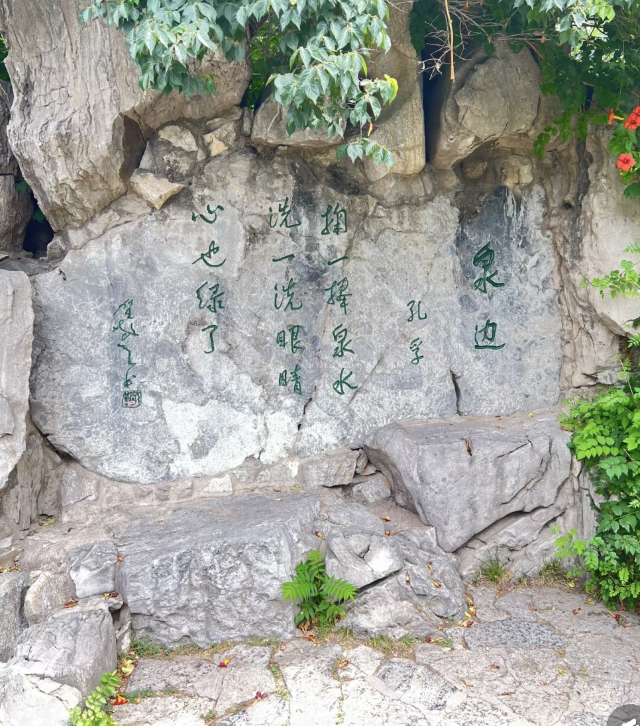 泉边
孔孚
掬一捧泉水
洗一洗眼睛
心也绿了